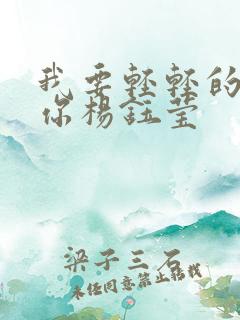 我要轻轻的
你杨钰莹
梁子三石
未经同意禁止转载